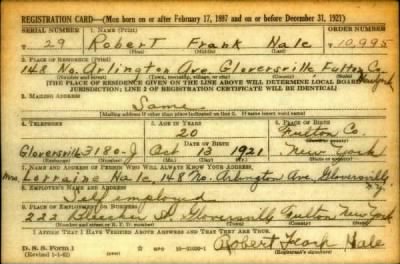 REGISTRATION CARD—(Men born on or after February 17, 1897 and on or before December 31, 1921)
SERIAL NUMBER 1. NAME (Print) ORDER NUMBER
29 Robert Frank Hale 10,995
(First) (Middle) (Last)
2. PLACE OF RESIDENCE (Print)
148 No. Arlington Ave Gloversville Fulton Co. New York
(Number and street) (Town, township, village, or city) (County) (State)
[THE PLACE OF RESIDENCE GIVEN ON THE LINE ABOVE WILL DETERMINE LOCAL BOARD
JURISDICTION; LINE 2 OF REGISTRATION CERTIFICATE WILL BE IDENTICAL]
3. MAILING ADDRESS
Same
(Mailing address if other than place indicated on line 2. If same insert word same)
4. TELEPHONE 5. AGE IN YEARS 6. PLACE OF BIRTH
20 Fulton Co.
DATE OF BIRTH (Town or county)
Gloversville 3180-J Oct 13 1921 New York
(Exchange) (Number) (Mo.) (Day) (Yr.) (State or country)
7. NAME AND ADDRESS OF PERSON WHO WILL ALWAYS KNOW YOUR ADDRESS
Mrs Lorraine Hale, 148 No. Arlington Ave. Gloversville N.Y.
8. EMPLOYER'S NAME AND ADDRESS
Self employed
9. PLACE OF EMPLOYMENT OR BUSINESS
222 Bleecker St Gloversville Fulton New York
(Number and street or R. F. D. number) (Town) (County) (State)
I AFFIRM THAT I HAVE VERIFIED ABOVE ANSWERS AND THAT THEY ARE TRUE.
D. S. S. Form 1
(Revised 1-1-42) GPO 16-21630-1
Robert Frank Hale
(Registrant's signature)